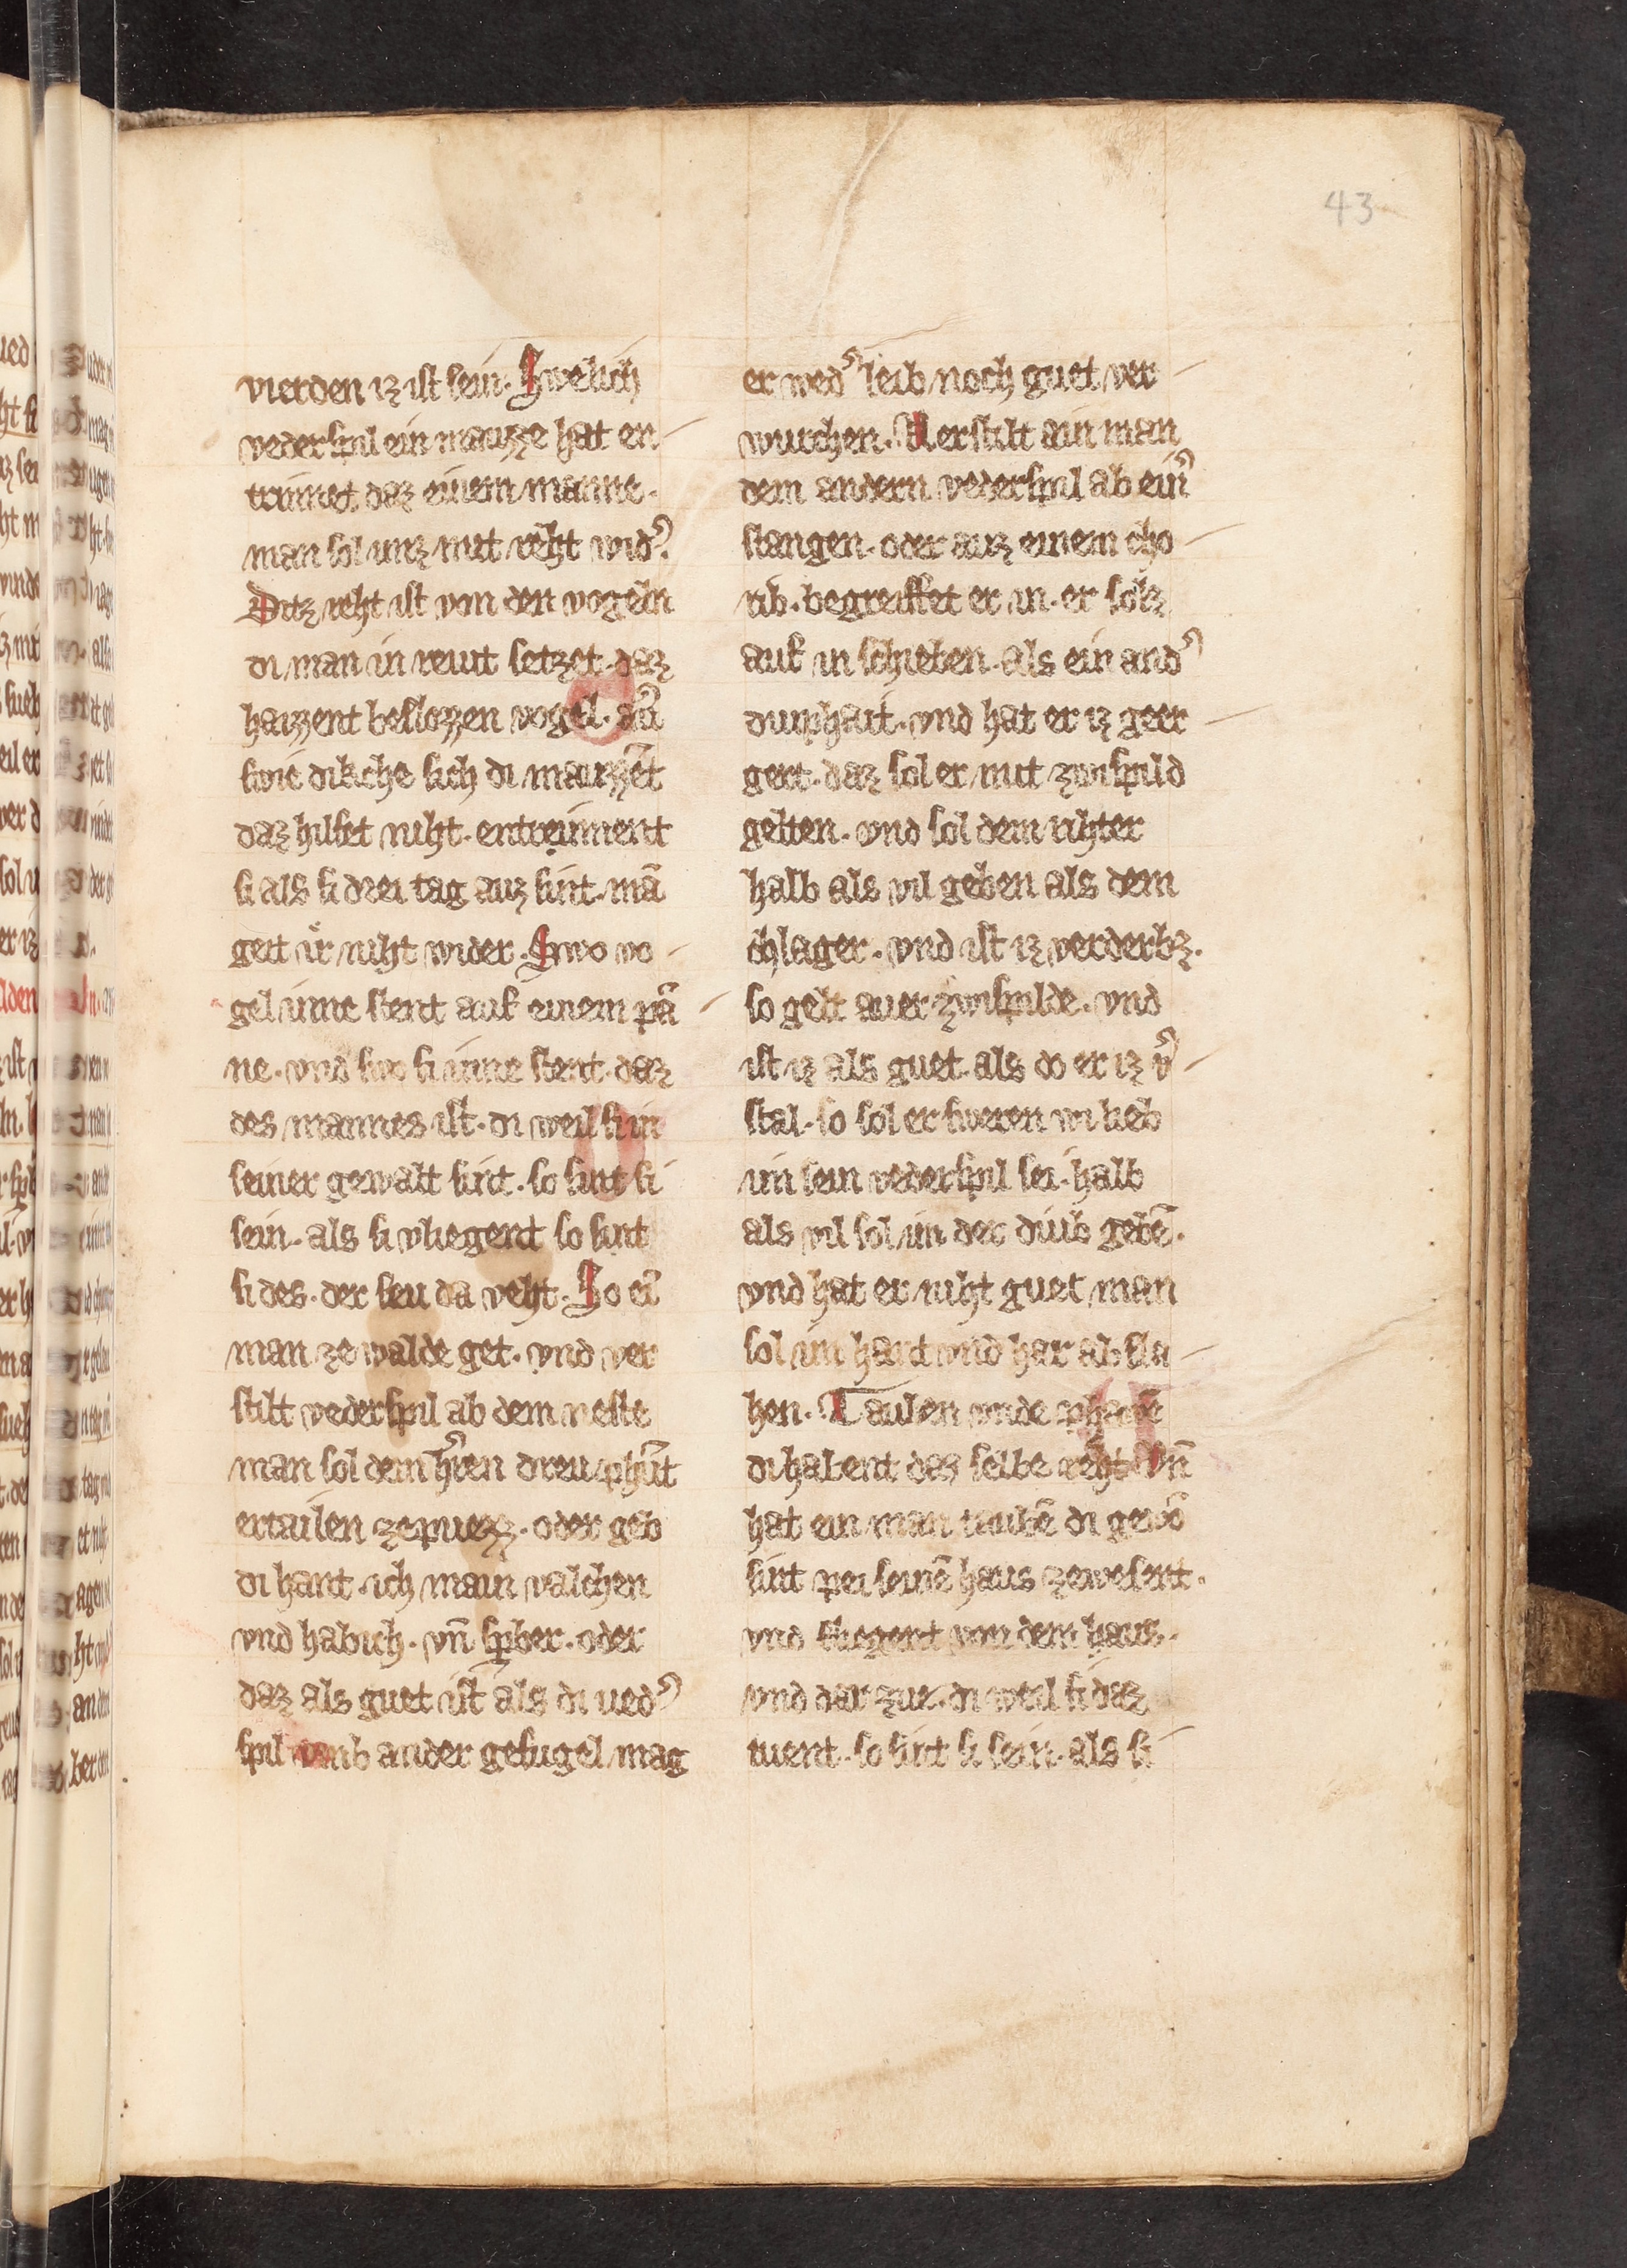 43
vierden iz ist sein. Swelich
vederspil ein mauzze hat en
trinnet daz einem manne.
man sol imz mit reht wid͛.
Ditz reht ist von den vogeln
di man in reutt setzet. daz
haizzent beslozzen vogel. an
swie dikche sich di mauzzēt
daz hilfet niht. entreinnent
si als si drei tag auz sint. mā
geit ir niht wider. Swo vo
gel inne stent auf einem pā
ne. vnd swo si inne stent. daz
des mannes ist. di weil si in
seiner gewalt sint. so sint si
sein. als si vliegent so sint
si des. der seu da veht. So ei
man ze walde get. vnd ver
stilt vederspil ab dem neste
man sol dem h͛ren dreu phūt
ertailen zepuezz. oder geb
di hant. ich main valchen
vnd habich. vn̄ sp̄ber. oder
daz als guet ist als di ued͛
spil vmb ander gefugel mag
er wed͛ leib noch guet ver
wurchen. Uerstilt ain man
dem andern vederspil ab ein͛
stangen. oder auz einem cho
rib. begreiffet er in. er solz
auf in schieben. als ein and͛
duiphait. vnd hat er iz geer
gert. daz sol er mit zwispild
gelten. vnd sol dem rihter
halb als vil geben als dem
chlager. vnd ist iz verderbz.
so gelt auer zwispilde. vnd
ist iz als guet. als do er iz v͛
stal. so sol er sweren wi lieb
im sein vederspil sei. halb
als vil sol im der duib gebē.
vnd hat er niht guet man
sol im haut vnd har ab sla
hen. Tauben vnde phawē
di habent daz selbe reht. Vn̄
hat ein man taubē di gewō
sint pei seinē haus zewesent.
vnd fliegent von dem haus.
vnd dar zue. di weil si daz
tuent. so sint si sein. als si